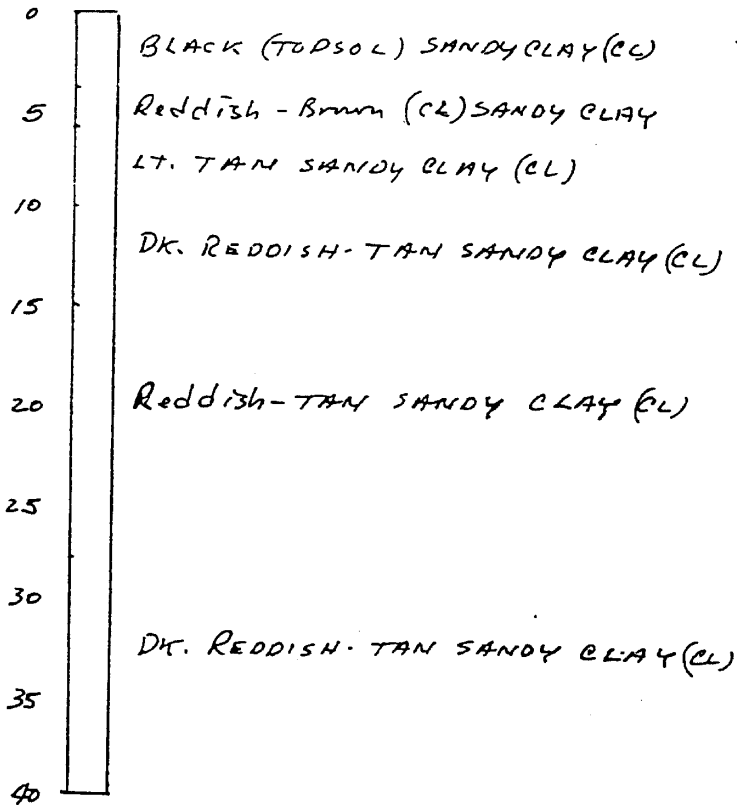 0
BLACK (TOPSOL) SANDY CLAY (CL)
5 Reddish - Brown (CL) SANDY CLAY
LT. TAN SANDY CLAY (CL)
10
DK. REDDISH - TAN SANDY CLAY (CL)
15
20 Reddish - TAN SANDY CLAY (CL)
25
30
DK. REDDISH - TAN SANDY CLAY (CL)
35
40